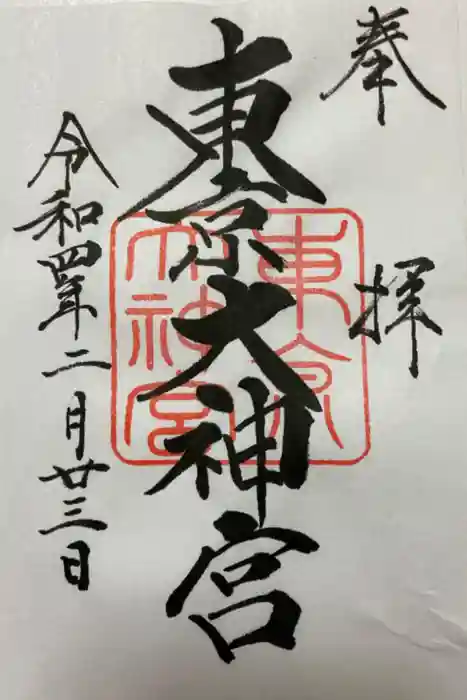 奉拝
東京大神宮
東京大神宮
令和四年二月廿三日